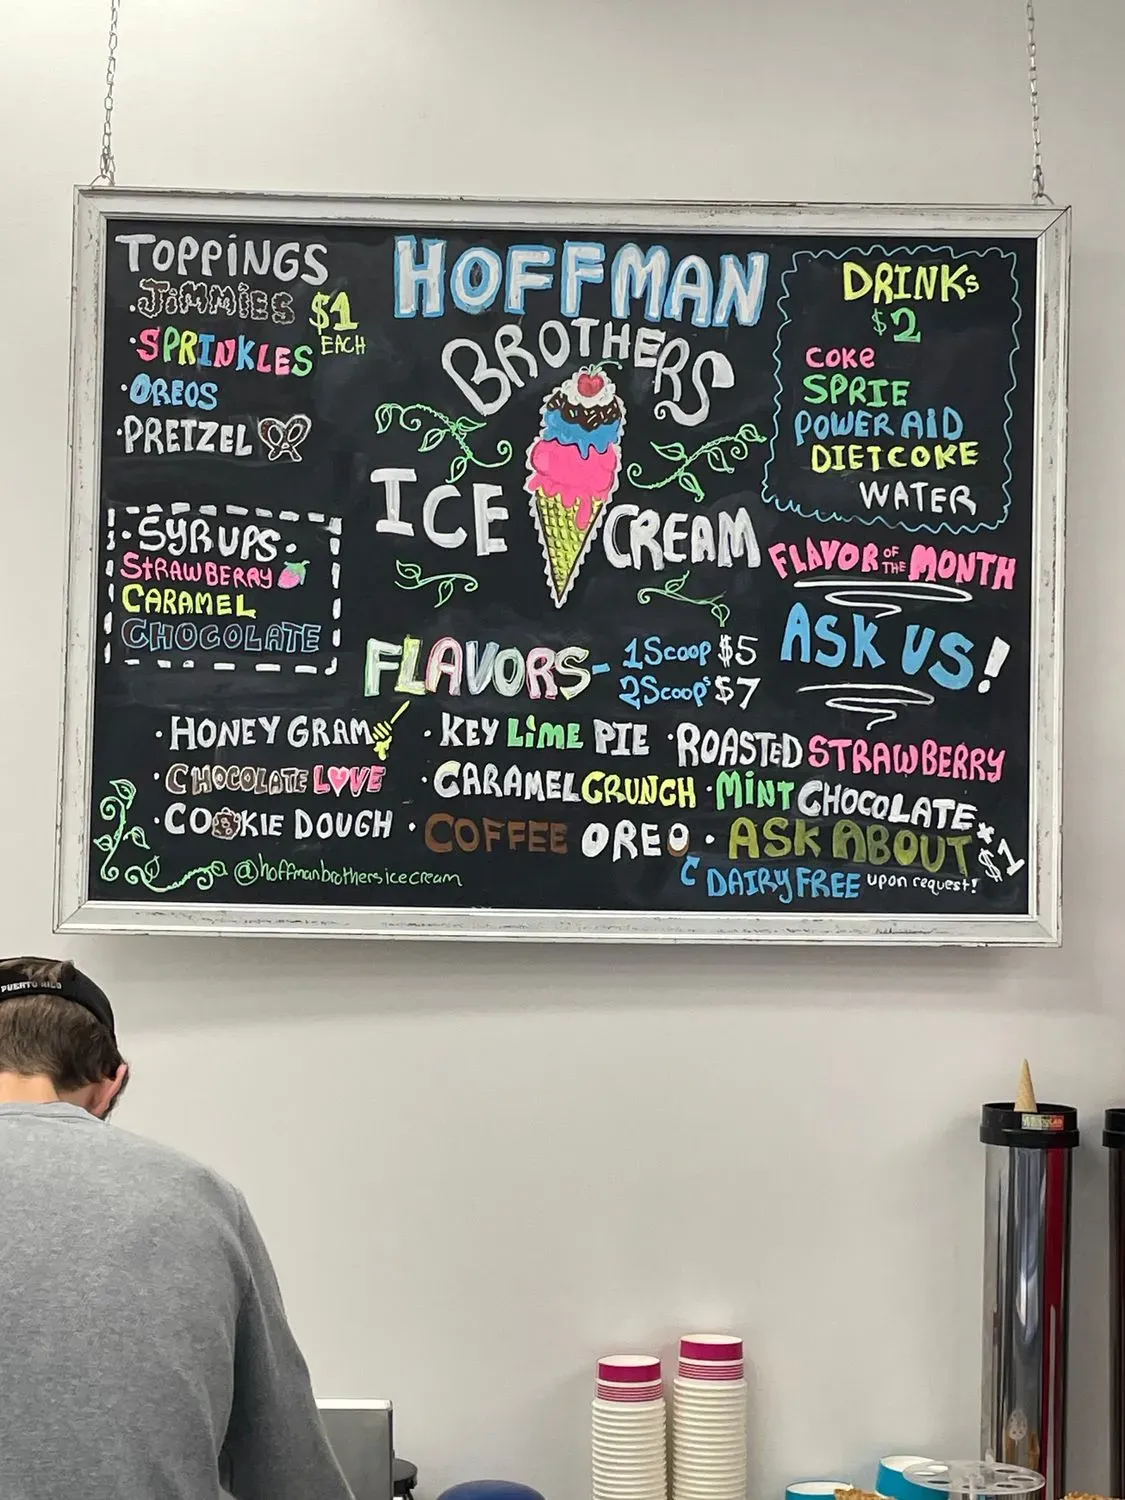 TOPPINGS
·JIMMIES
$1
EACH
·SPRINKLES
·OREOS
·PRETZEL
·SYRUPS·
STRAWBERRY
CARAMEL
CHOCOLATE
HOFFMAN
BROTHERS
ICE CREAM
DRINKS
$2
COKE
SPRIE
POWER AID
DIET COKE
WATER
FLAVOR OF THE MONTH
ASK US!
FLAVORS- 1 Scoop $5
2 Scoops $7
·HONEY GRAM ·KEY LIME PIE ·ROASTED STRAWBERRY
·CHOCOLATE LOVE ·CARAMEL CRUNCH ·MINT CHOCOLATE
·COOKIE DOUGH ·COFFEE OREO ·ASK ABOUT + $1
DAIRY FREE upon request!
@hoffmanbrothersicecream
PUERTO RICO